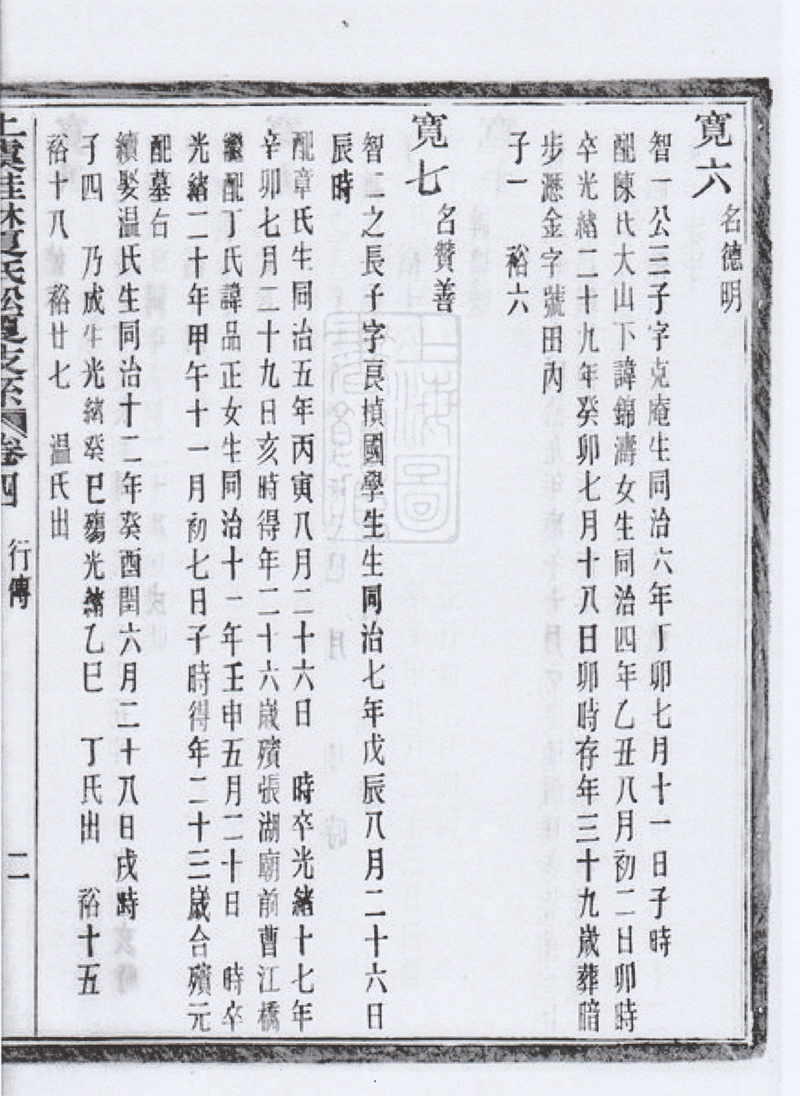 寬六 名德明
智一公三子字克庵生同治六年丁卯七月十一日子時
配陳氏大山下諱錦濤女生同治四年乙丑八月初二日卯時
卒光緒二十九年癸卯七月十八日卯時存年三十九歲葬暗
步瀝金字號田內
子一 裕六
寬七 名贊善
智二之長子字良楨國學生生同治七年戊辰八月二十六日
辰時
配章氏生同治五年丙寅八月二十六日 時卒光緒十七年
辛卯七月二十九日亥時得年二十六歲殯張湖廟前曹江橋
繼配丁氏諱品正女生同治十一年壬申五月二十日 時卒
光緒二十年甲午十一月初七日子時得年二十三歲合殯元
配墓右
續娶温氏生同治十二年癸酉閏六月二十八日戌時
子四 乃成生光緒癸巳殤光緒乙巳 丁氏出 裕十五
裕十八 裕廿七 温氏出
上虞桂林夏氏松夏支系 卷四 行傳 二
上海圖